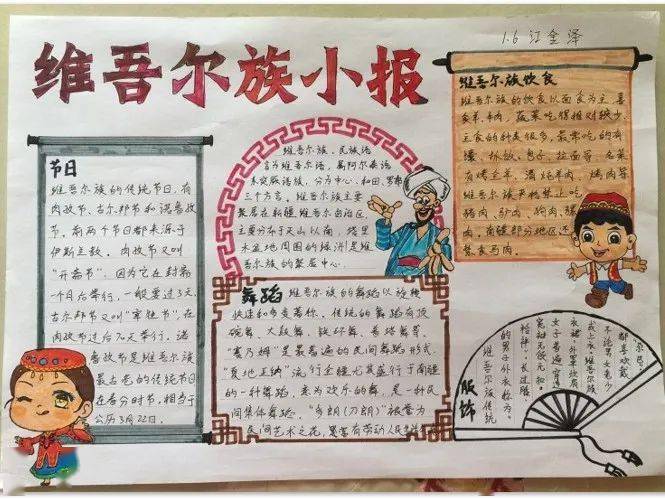 维吾尔族小报
1.6 江全泽
节日
维吾尔族的传统节日,有
肉孜节、古尔邦节和诺鲁孜
节。前两个节日都来源于
伊斯兰教。肉孜节又叫
"开斋节",因为它在封斋
一个月后举行,一般要过三天。
古尔邦节又叫"宰牲节",在
肉孜节过后70天举行。诺
鲁孜节是维吾尔族
最古老的传统节日
在春分时节,相当于
公历3月22日。
维吾尔族,民族语
言为维吾尔语,属阿尔泰语
系突厥语族,分为中心、和田、罗布
三个方言。维吾尔族主要
聚居在新疆维吾尔自治区,
主要分布于天山以南,塔里
木盆地周围的绿洲是维
吾尔族的聚居中心。
维吾尔族饮食
维吾尔族的饮食以面食为主,喜
食羊、牛肉,蔬菜吃得相对较少。
主食的种类很多,最常吃的有
馕、抓饭、包子、拉面等,名菜
有烤全羊、清炖羊肉、烤肉等
维吾尔族严格禁止吃
猪肉、驴肉、狗肉、骡
肉,南疆部分地区还
禁食马肉。
舞蹈 维吾尔族的舞蹈以旋转
快速和多变著称,传统的舞蹈有顶
碗舞、大鼓舞、铁环舞、普塔舞等,
"赛乃姆"是最普遍的民间舞蹈形式,
"夏地亚纳"流行全疆尤其盛行于南疆
的一种舞蹈,意为欢乐的舞,是一种民
间集体舞蹈。"多朗(刀朗)"被誉为
民间艺术之花,累富有劳动人民生活
服饰
维吾尔族传统
的男子外衣称为
袷袢",长过膝、
宽袖无领无扣。
女子普遍穿连
衣裙,外罩坎肩
或上衣,维吾尔族
不论男女老少
都喜欢戴